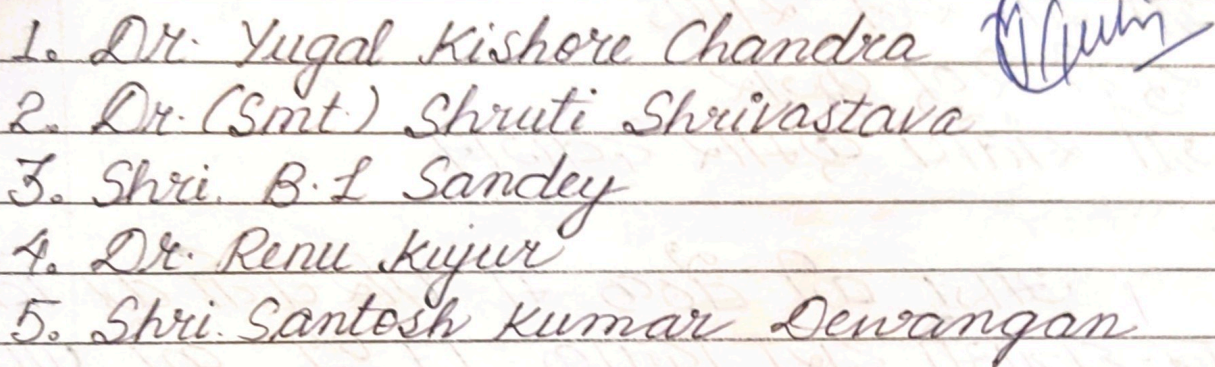 1. Dr. Yugal Kishore Chandra
2. Dr. (Smt.) Shruti Shrivastava
3. Shri. B.L Sandey
4. Dr. Renu Kujur
5. Shri. Santosh Kumar Dewangan